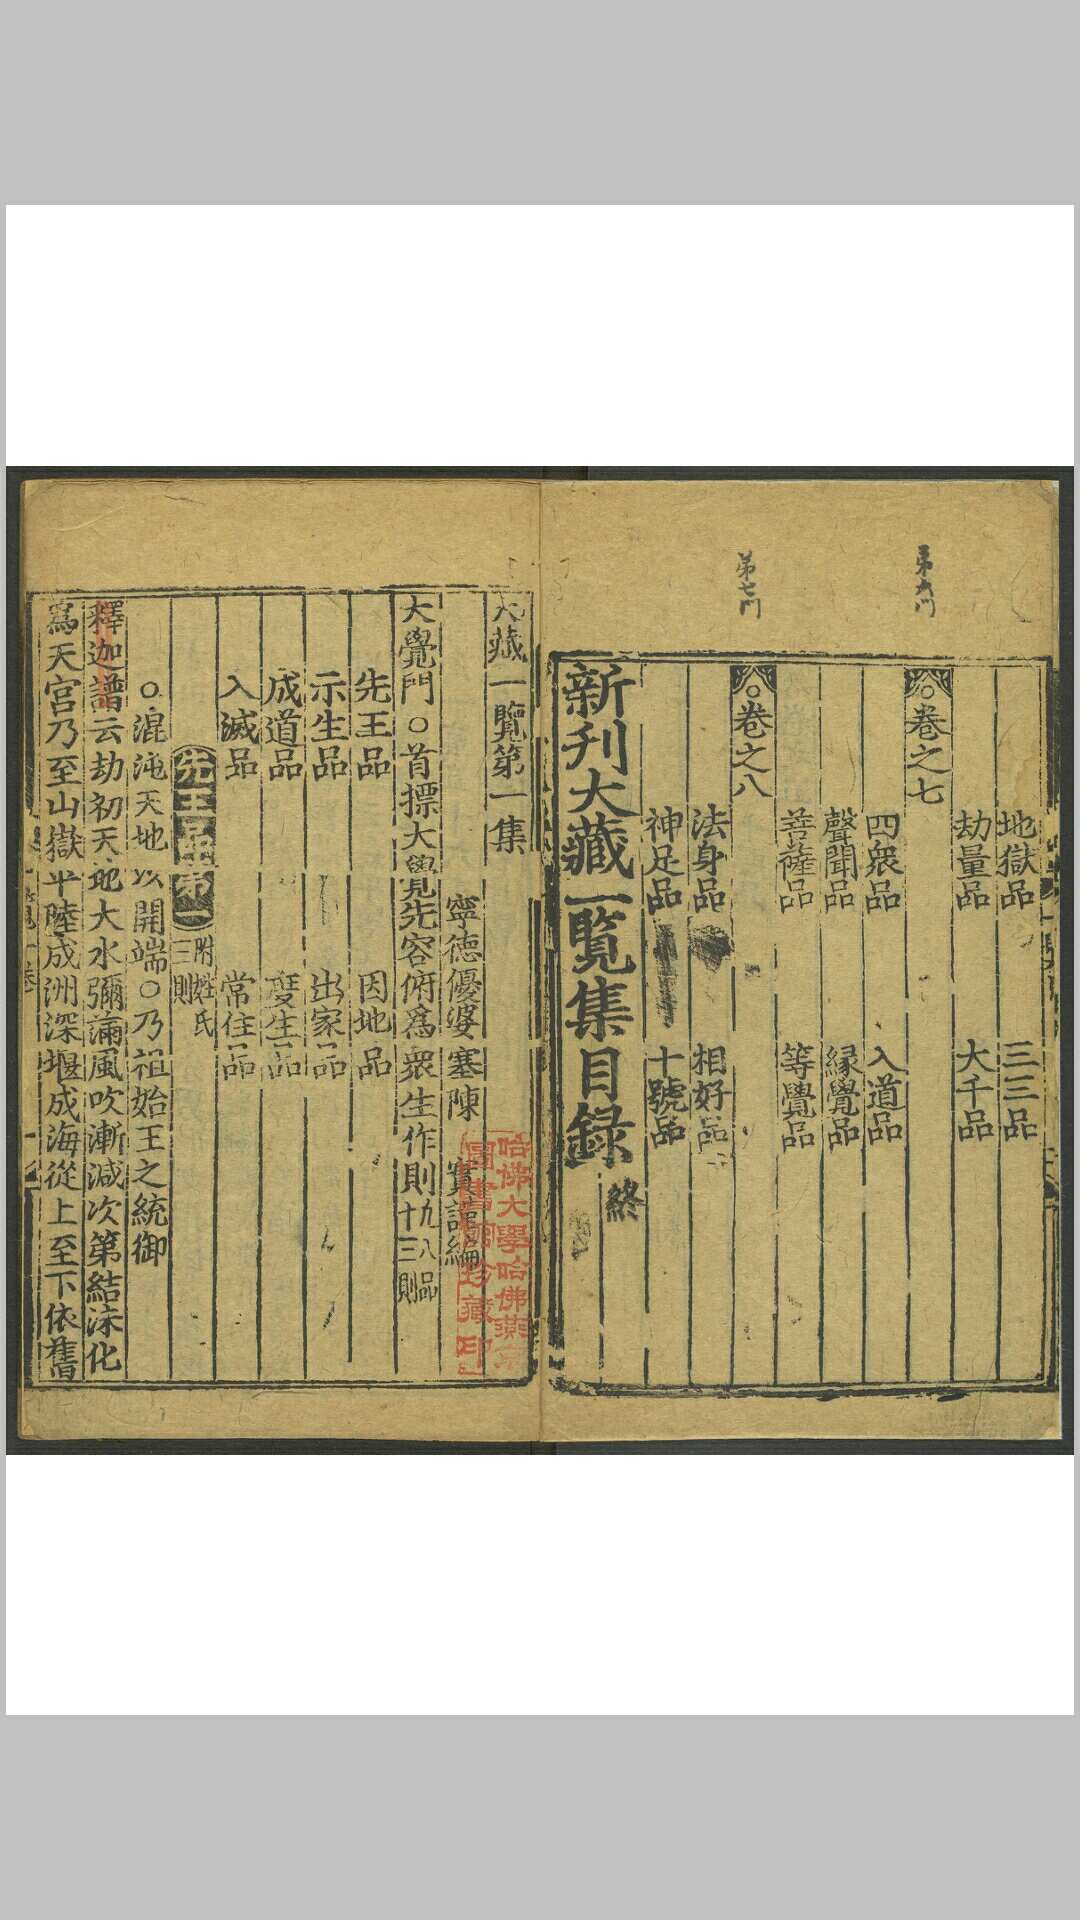 地獄品　三三品
劫量品　大千品
卷之七
第六門
四衆品　入道品
聲聞品　縁覺品
菩薩品　等覺品
卷之八
第七門
法身品　相好品
神足品　十號品
新刊大藏一覽集目録終
大藏一覽第一集
寧德優婆塞陳實謹編
大覺門○首摽大覺先容俯爲衆生作則凡八品十三則
先王品　因地品
示生品　出家品
成道品　度生品
入滅品　常住品
先王品第一附姓氏三則
○混沌天地以開端○乃祖始王之統御
釋迦譜云劫初天地大水彌滿風吹漸減次第結沫化
爲天宮乃至山嶽平陸成洲深堰成海從上至下依舊
哈佛大學哈佛燕京
圖書館珍藏印